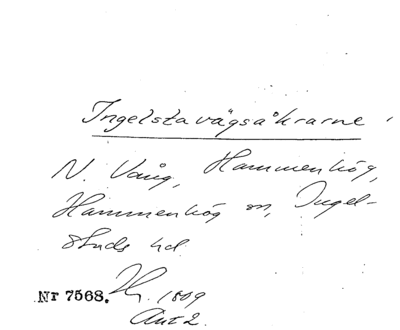 Ingelstavägsåkrarne
N. Vång, Hammenhög,
Hammenhög sn, Ingel-
stads hd
Nr 7568. Hy. 1809
Akt 2.